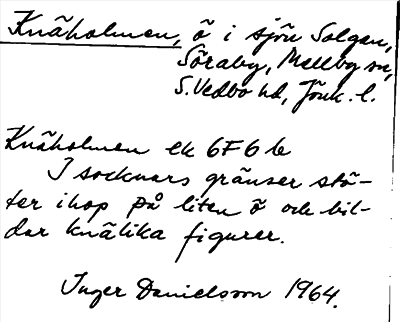 Knäholmen, ö i sjön Solgen,
Söraby, Mellby sn,
S. Vedbo hd, Jönk. l.
Knäholmen ek 6F6b
I socknars gränser stö-
ter ihop på liten ö och bil-
dar knälika figurer.
Inger Danielsson 1964.